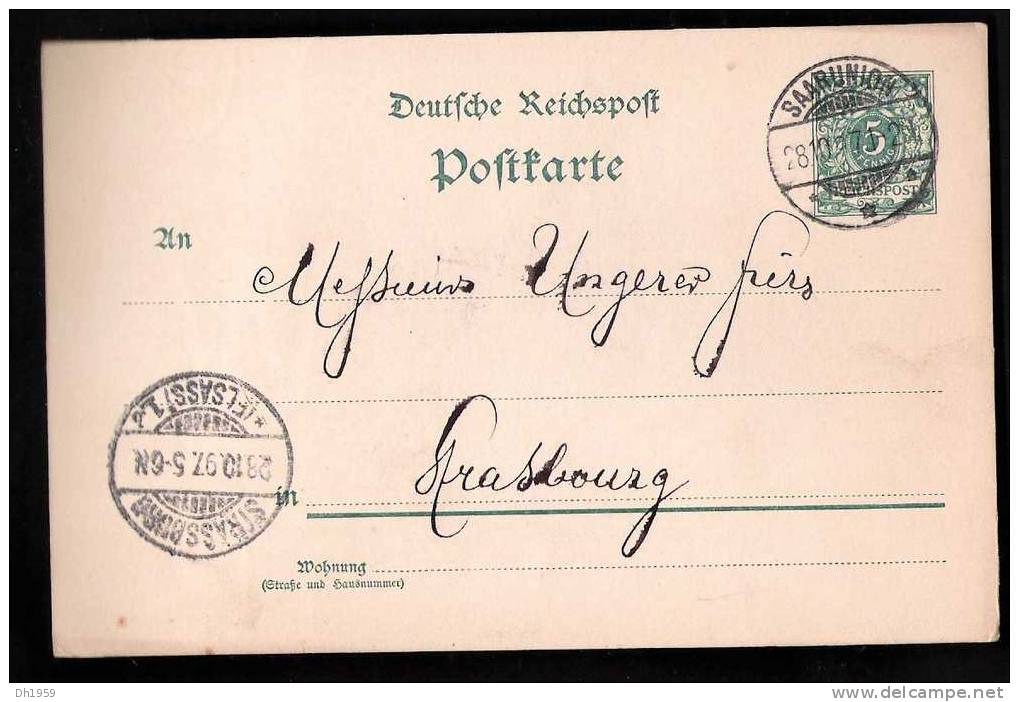 Deutsche Reichspost
Postkarte
SAARUNION
28 10
5
PFENNIG
REICHSPOST
An
Messieurs Ungerer frères
*(ELSASS) 1.d
28.10.97. 5-6N.
STRASSBURG
in
Strasbourg
Wohnung
(Straße und Hausnummer)
DH1959
delcampe.net